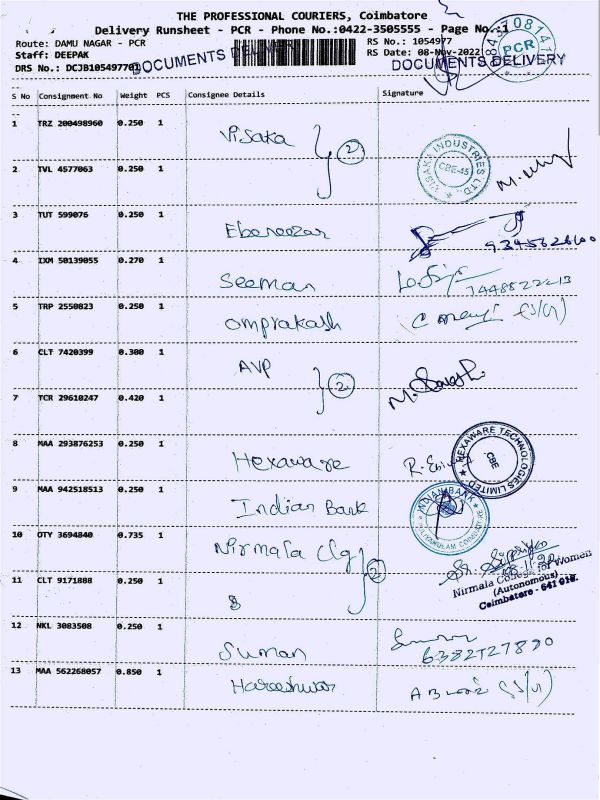 THE PROFESSIONAL COURIERS, Coimbatore
Delivery Runsheet - PCR - Phone No.:0422-3505555 - Page No.:1
Route: DAMU NAGAR - PCR RS No.: 1054977
Staff: DEEPAK RS Date: 08-Nov-2022
DRS No.: DCJB105497701
DOCUMENTS DELIVERY DOCUMENTS DELIVERY
PCR
S No Consignment No Weight PCS Consignee Details Signature
1 TRZ 200498960 0.250 1 Visaka 2
VISAKA INDUSTRIES LTD CBE-45
2 TVL 4577063 0.250 1
3 TUT 599076 0.250 1 Ebeneezar
4 IXM 50139055 0.270 1 Seeman
5 TRP 2550823 0.250 1 Omprakash
6 CLT 7420399 0.300 1 AVP 2
7 TCR 29610247 0.420 1
8 MAA 293876253 0.250 1 Hexaware
HEXAWARE TECHNOLOGIES LIMITED CBE
9 MAA 942518513 0.250 1 Indian Bank
INDIAN BANK
10 OTY 3694840 0.735 1 Nirmala Clg 2
Nirmala College for Women
(Autonomous)
Coimbatore - 641 018.
11 CLT 9171888 0.250 1
12 NKL 3083508 0.250 1 Suman
6382727890
13 MAA 562268057 0.850 1 Hareeshwar